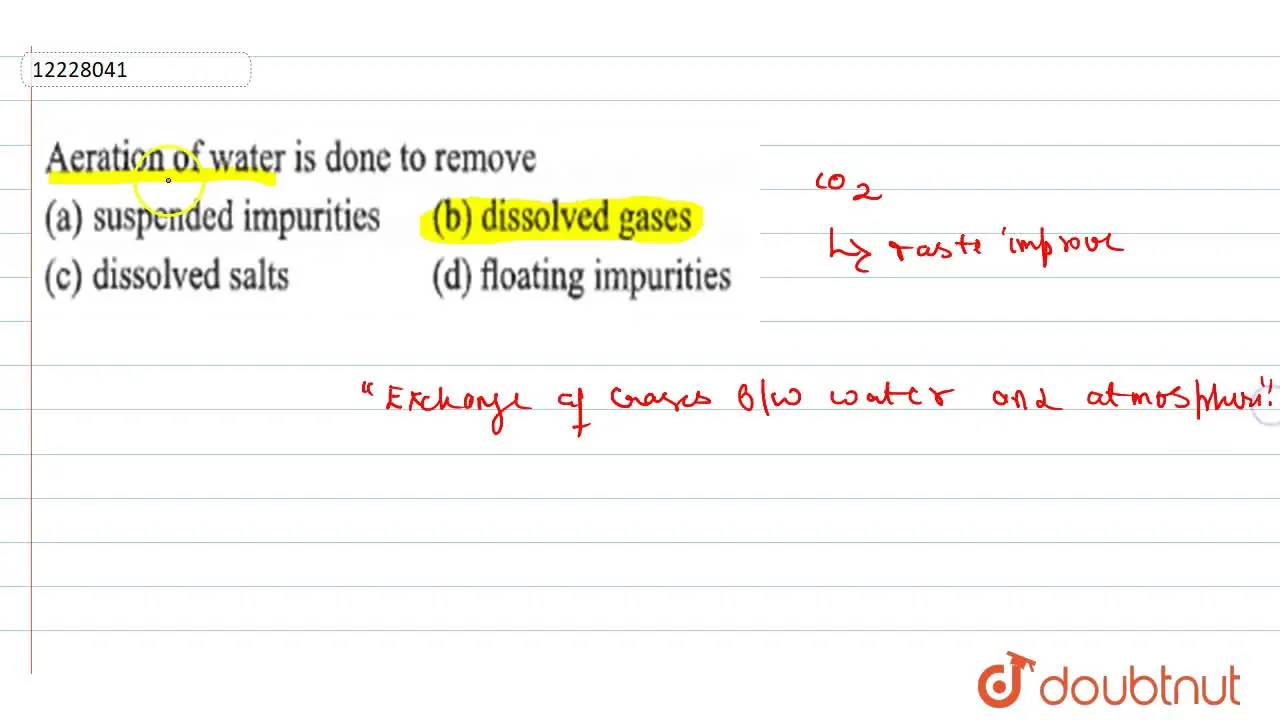 12228041
Aeration of water is done to remove
(a) suspended impurities (b) dissolved gases
(c) dissolved salts (d) floating impurities
CO2
↳ taste improve
"Exchange of Gases b/w water and atmospheri"
doubtnut